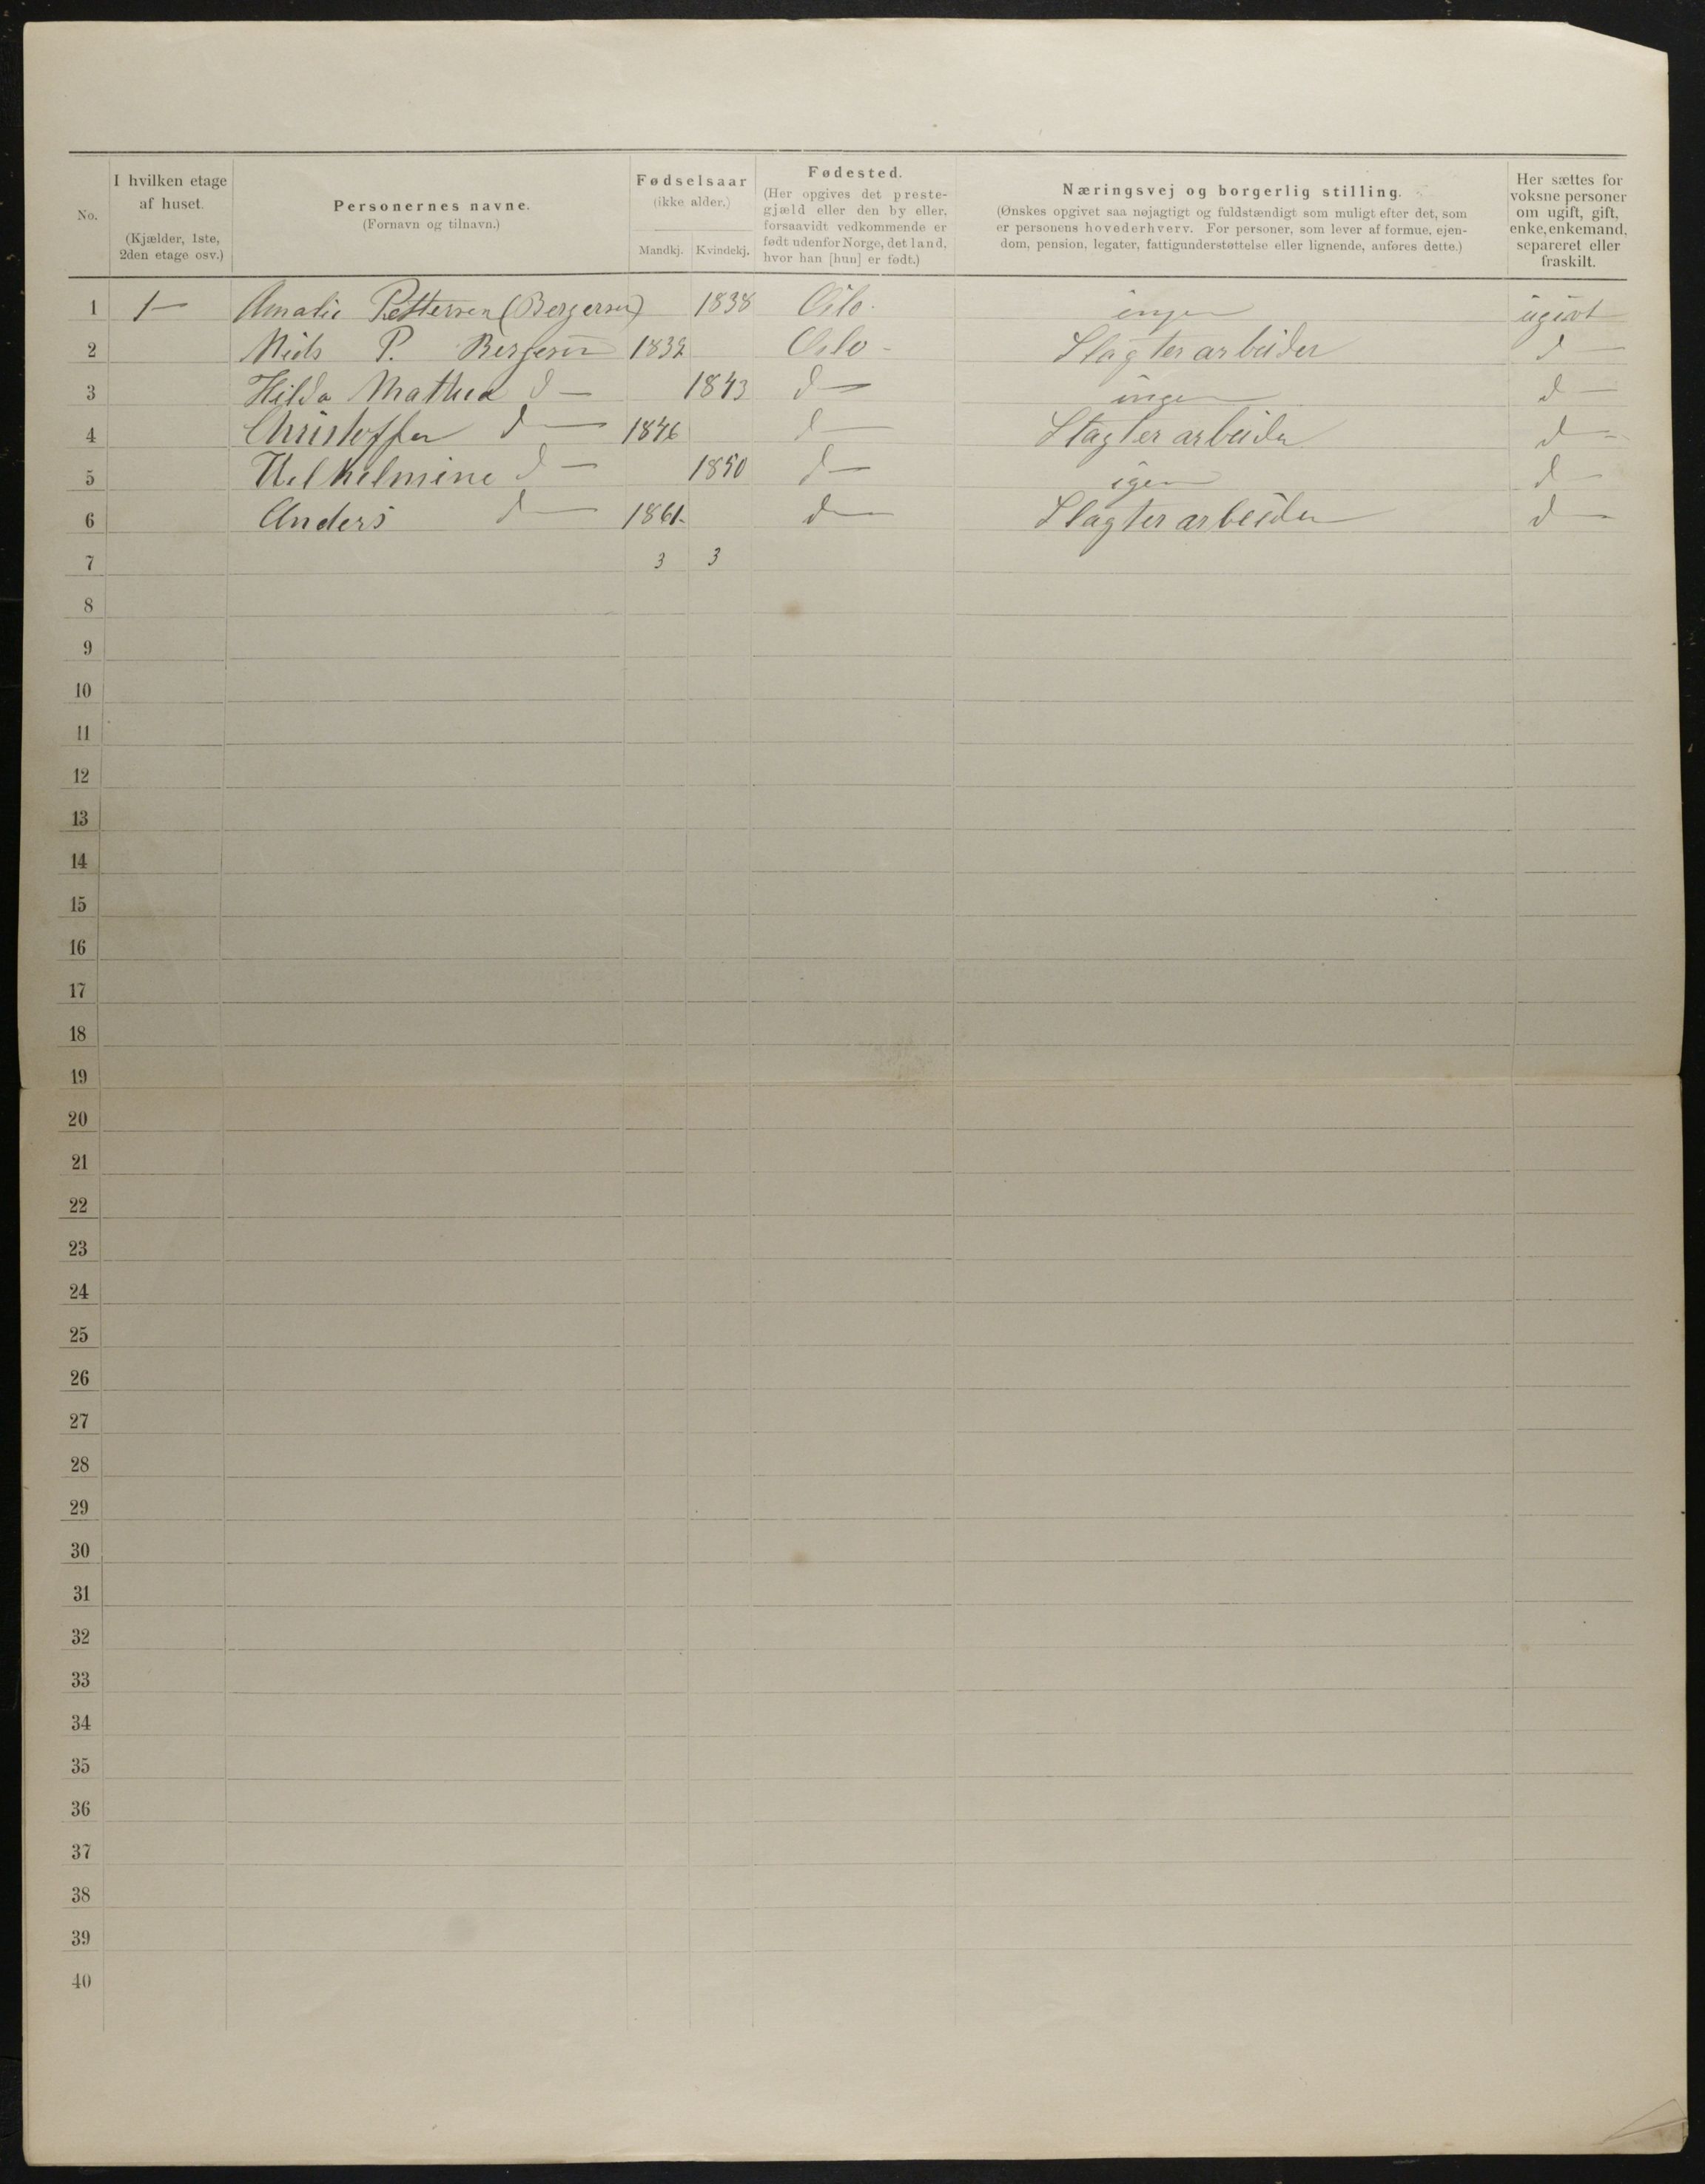 No.
I hvilken etage
af huset.
(Kjælder, 1ste,
2den etage osv.)
Personernes navne.
(Fornavn og tilnavn.)
Fødselsaar
(ikke alder.)
Mandkj. Kvindekj.
Fødested.
(Her opgives det preste-
gjæld eller den by eller,
forsaavidt vedkommende er
født udenfor Norge, det land,
hvor han [hun] er født.)
Næringsvej og borgerlig stilling.
(Ønskes opgivet saa nøjagtigt og fuldstændigt som muligt efter det, som
er personens hovederhverv. For personer, som lever af formue, ejen-
dom, pension, legater, fattigunderstøttelse eller lignende, anføres dette.)
Her sættes for
voksne personer
om ugift, gift,
enke, enkemand,
separeret eller
fraskilt.
1 1 — Amalie Pettersen (Bergersen) 1838 Oslo. ingen ugivt
2 Niels P. Bergersen 1832 Oslo - Slagterarbeider d —
3 Hilda Mathea d — 1843 d — ingen d —
4 Christoffer d — 1846 d — Slagterarbeider d —
5 Velhelmine d — 1850 d — igen d —
6 Anders d — 1861. d — Slagterarbeider d —
7 3 3
8
9
10
11
12
13
14
15
16
17
18
19
20
21
22
23
24
25
26
27
28
29
30
31
32
33
34
35
36
37
38
39
40